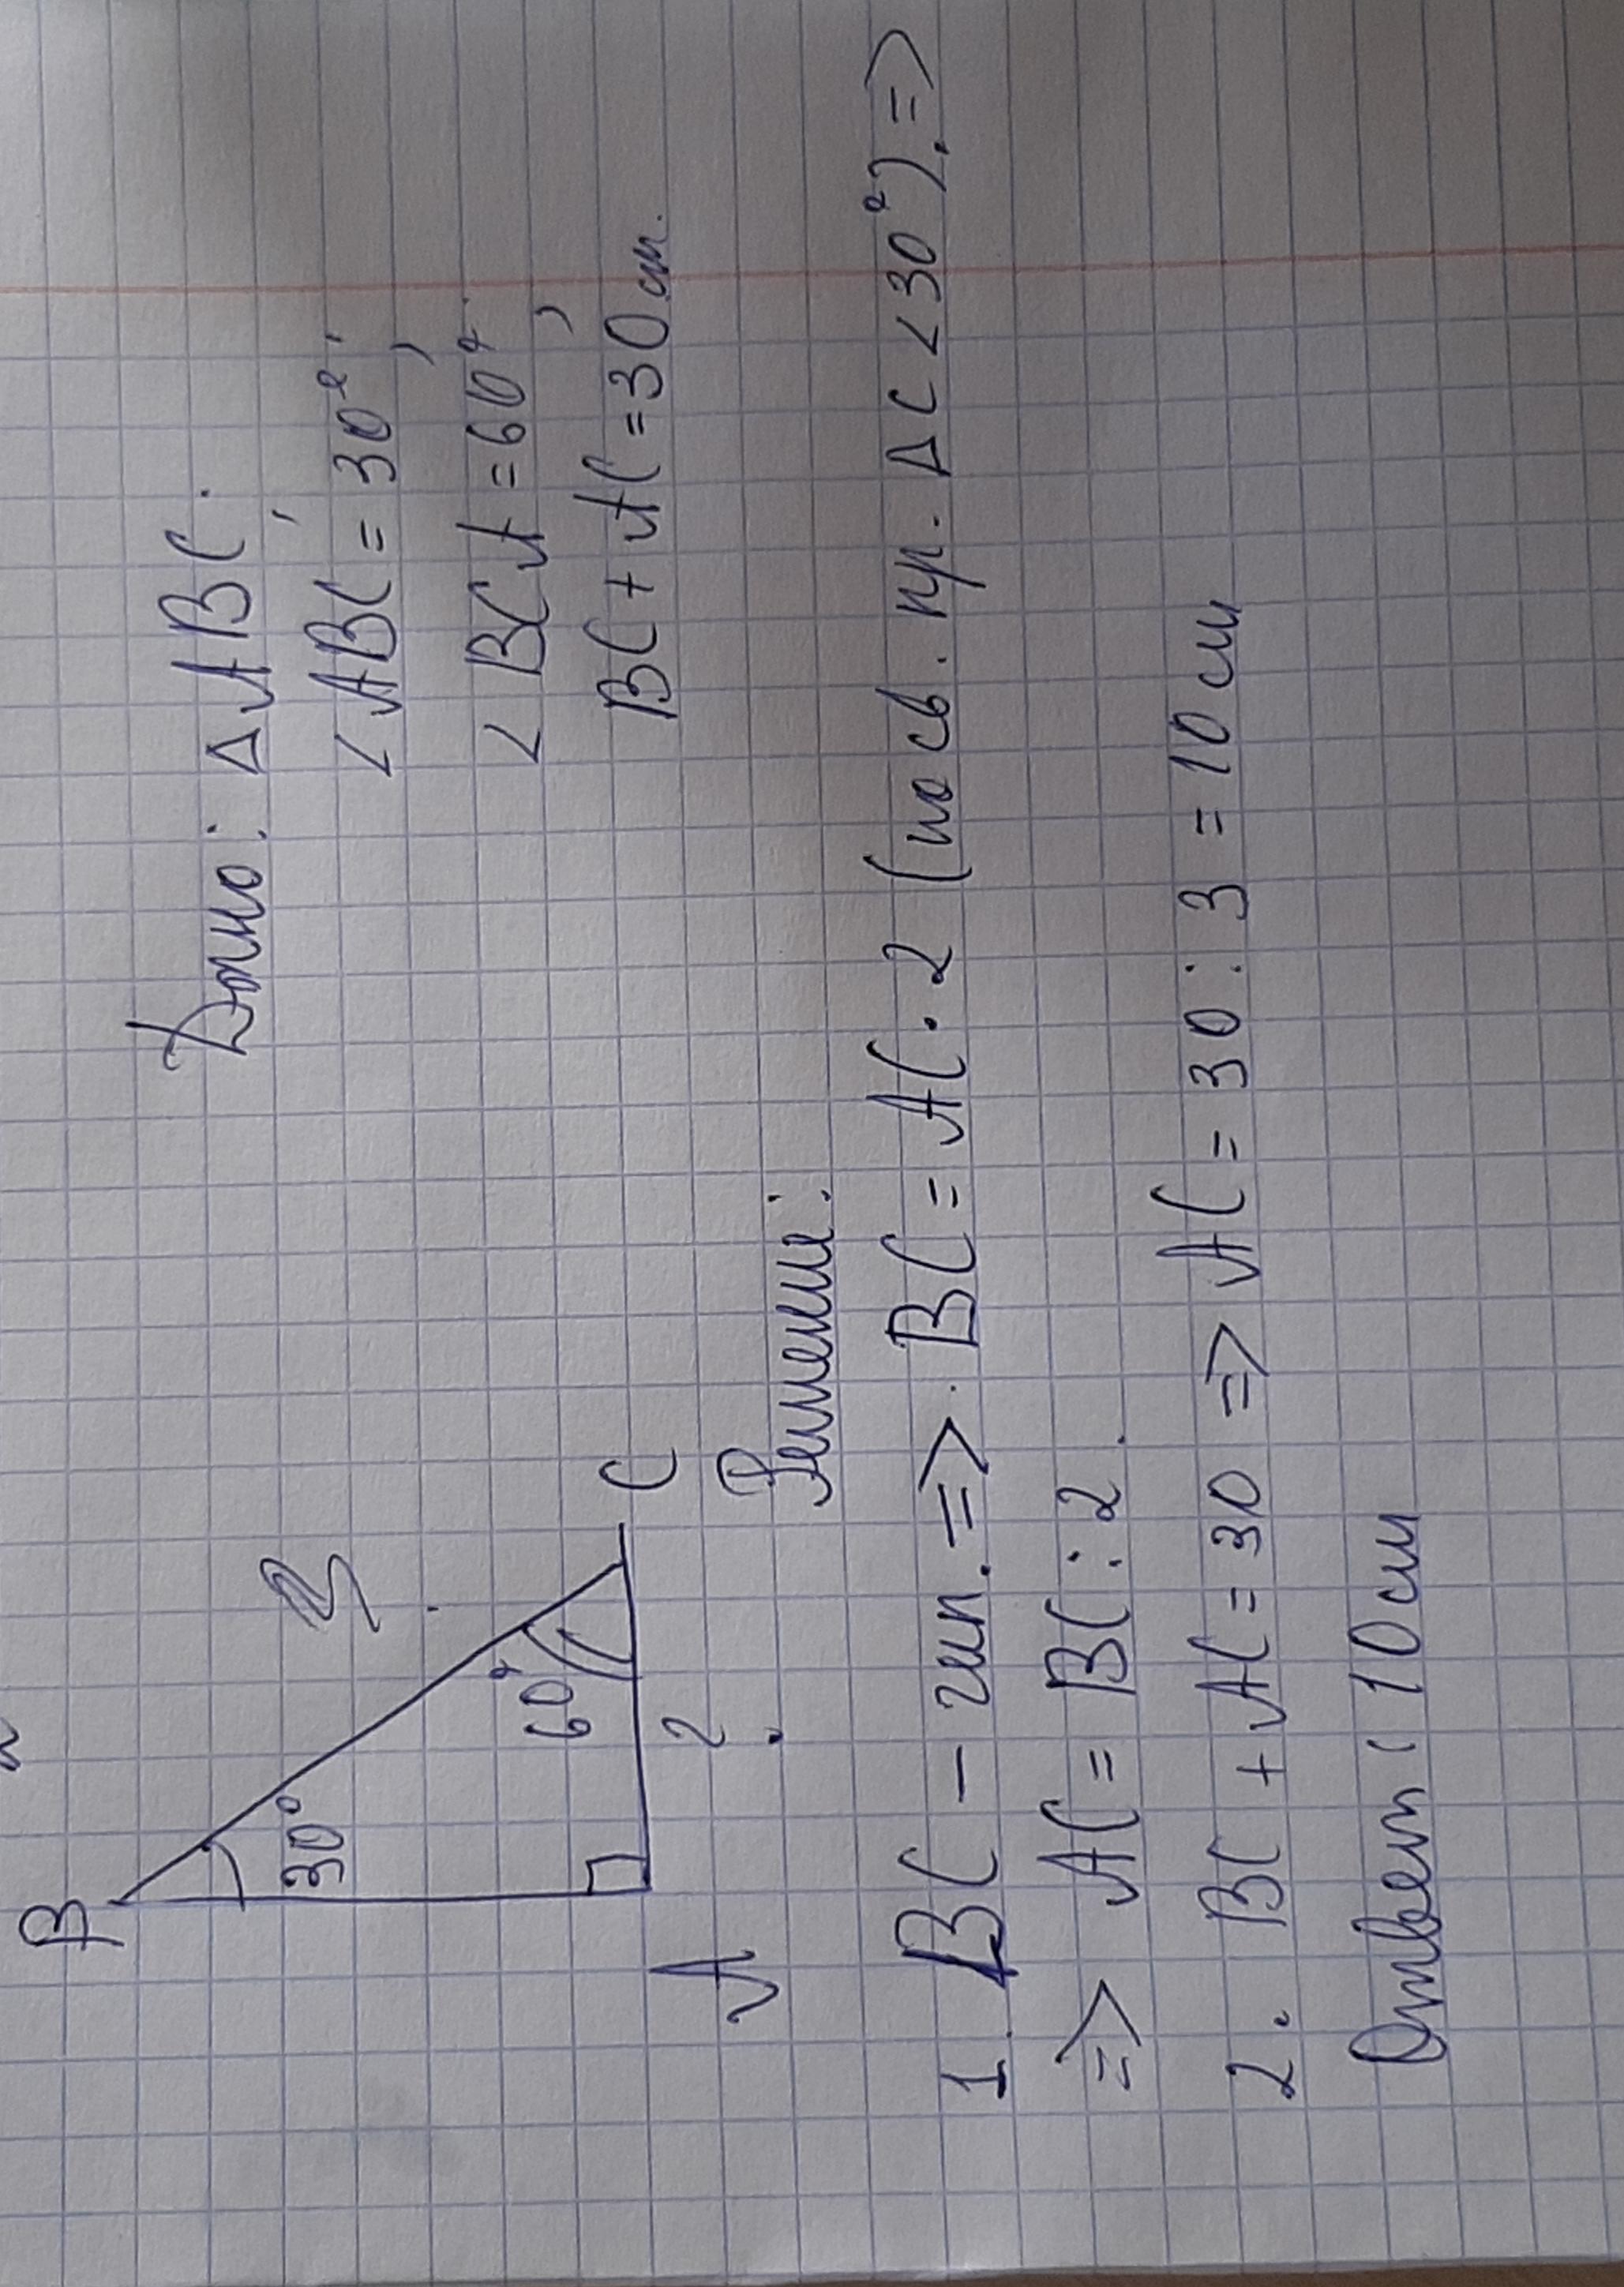 Дано: △ABC.
<ABC = 30°,
<BCA = 60°,
BC + AC = 30 см.
B
30°
60°
A
?
C
Решение:
1. BC – гип. => BC = AC · 2 (по св. пр. △ С < 30°). =>
=> AC = BC : 2.
2. BC + AC = 30 => AC = 30 : 3 = 10 см
Ответ: 10 см